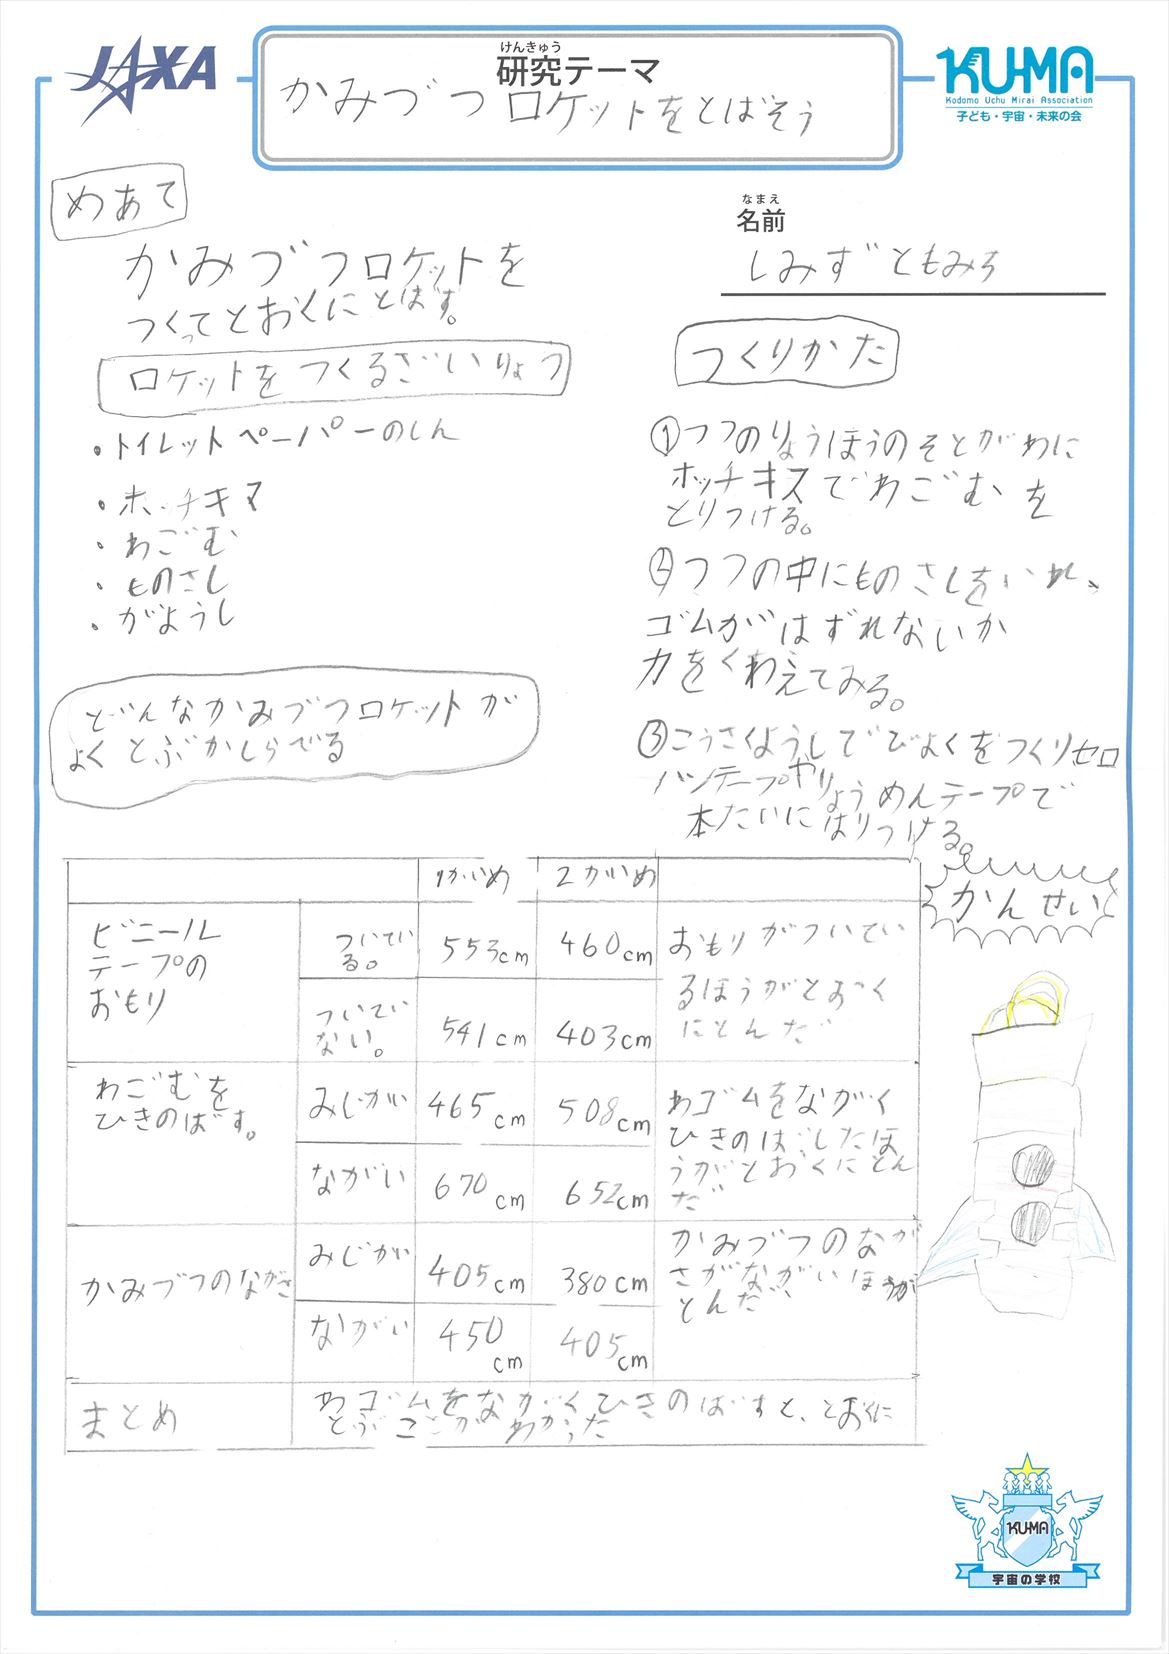 JAXA
けんきゅう
研究テーマ
かみづつロケットをとばそう
KU-MA
Kodomo Uchu Mirai Association
子ども・宇宙・未来の会
めあて
かみづつロケットを
つくってとおくにとばす。
なまえ
名前
しみずともみち
ロケットをつくるざいりょう
・トイレットペーパーのしん
・ホッチキス
・わごむ
・ものさし
・がようし
どんなかみづつロケットが
よくとぶかしらべる
つくりかた
①つつのりょうほうのそとがわに
ホッチキスでわごむを
とりつける。
②つつの中にものさしをいれ、
ゴムがはずれないか
力をくわえてみる。
③こうさくようしでびよくをつくりセロ
ハンテープやりょうめんテープで
本たいにはりつける。
かんせい
1かいめ 2かいめ
ビニール
テープの
おもり
ついてい
る。
553cm 460cm
ついてい
ない。
541cm 403cm
おもりがついてい
るほうがとおく
にとんだ
わごむを
ひきのばす。
みじかい 465cm 508cm
ながい 670cm 652cm
わゴムをながく
ひきのばしたほ
うがとおくにとん
だ
かみづつのながさ
みじかい 405cm 380cm
ながい 450cm 405cm
かみづつのなが
さがながいほうが
とんだ
まとめ
わゴムをながくひきのばすと、とおくに
とぶことがわかった
KU-MA
宇宙の学校